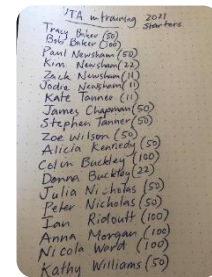 'TA in training 2021
starters
Tracy Baker (50)
Bob Baker (100)
Paul Newsham (50)
Kim Newsham (22)
Zack Newsham (11)
Jodie Newsham (11)
Kate Tanner (11)
James Chapman (50)
Stephen Tanner (50)
Zoe Wilson (50)
Alicia Kennedy (50)
Colin Buckley (100)
Donna Buckley (22)
Julia Nicholas (50)
Peter Nicholas (50)
Ian Ridoutt (100)
Anna Morgan (100)
Nicola Ward (100)
Kathy Williams (50)